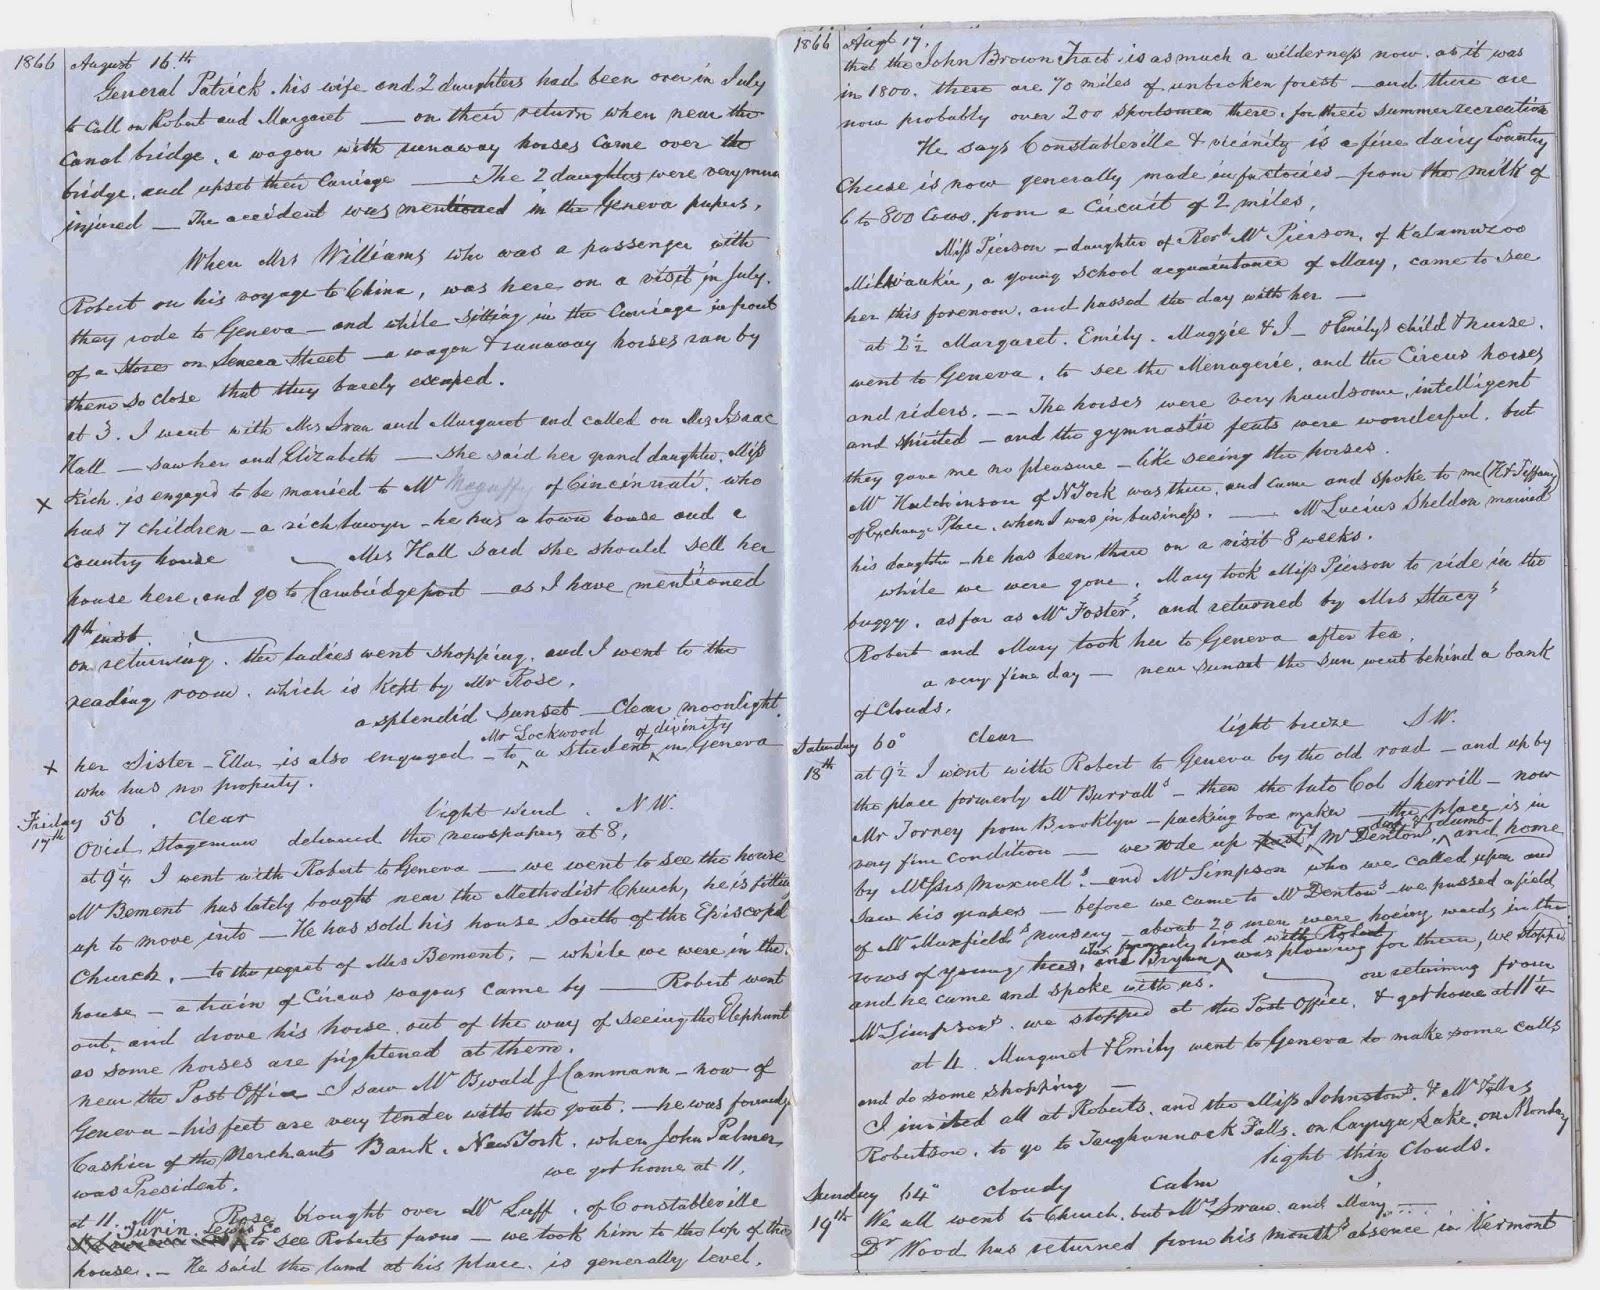 1866 August 16.th
General Patrick, his wife and 2 daughters had been over in July
to call on Robert and Margaret — on their return when near the
Canal bridge, a wagon with runaway horses came over the
bridge, and upset their carriage — The 2 daughters were very much
injured — The accident was mentioned in the Geneva papers,
When Mrs Williams who was a passenger with
Robert on his voyage to China, was here on a visit in July.
they rode to Geneva — and while sitting in the Carriage in front
of a Store on Seneca Street — a wagon & runaway horses ran by
them so close that they barely escaped.
at 3. I went with Mrs Swan and Margaret and called on Mrs Isaac
Hall — saw her and Elizabeth — she said her grand daughter, Miss
x Rich, is engaged to be married to Mr Maguffy of Cincinnati, who
has 7 children — a rich lawyer — he has a town house and a
country house — Mrs Hall said she should sell her
house here, and go to Cambridgeport — as I have mentioned
11th inst.
on returning, the ladies went shopping, and I went to the
reading room, which is kept by Mr Rose,
a splendid sunset — Clear moonlight.
Mr Lockwood of divinity
x her Sister — Ella is also engaged — to a student in Geneva
who has no property.
Friday 56 clear light wind N W.
17th Ovid Stageman delivered the newspapers at 8,
at 9¼ I went with Robert to Geneva — we went to see the house
Mr Bement has lately bought near the Methodist Church, he is fitting
up to move into — He has sold his house South of the Episcopal
Church, — to the regret of Mrs Bement, — while we were in the
house — a train of Circus wagons came by — Robert went
out, and drove his horse, out of the way of seeing the Elephant
as some horses are frightened at them.
near the Post Office I saw Mr Oswald J Cammann — now of
Geneva — his feet are very tender with the gout. — he was formerly
Cashier of the Merchants Bank, New York, when John Palmer
was President. we got home at 11,
at 11. Mr Rose brought over Mr Luff, of Constableville
Turin, Lewis Co to see Roberts farm — we took him to the top of the
house. — He said the land at his place, is generally level,
1866 Augt 17.
that the John Brown Tract is as much a wilderness now, as it was
in 1800. there are 70 miles of unbroken forest — and there are
now probably over 200 sportsmen there, for their summer recreation
He says Constableville & vicinity is a fine dairy Country
Cheese is now generally made in factories — from the milk of
6 to 800 Cows, from a Circuit of 2 miles,
Miss Pierson — daughter of Revd Mr Pierson, of Kalamazoo
Milwaukie, a young school acquaintance of Mary, came to see
her this forenoon, and passed the day with her —
at 2½ Margaret. Emily. Maggie & I — & Emily's child & nurse,
went to Geneva, to see the Menagerie, and the Circus horses
and riders. — The horses were very handsome, intelligent
and spirited — and the gymnastic feats were wonderful, but
they gave me no pleasure — like seeing the horses.
Mr Hutchinson of N York was there, and came and spoke to me (H & Tiffany)
of Exchange Place, when I was in business. — Mr Lucius Sheldon married
his daughter — he has been there on a visit 8 weeks.
while we were gone, Mary took Miss Pierson to ride in the
buggy, as far as Mr Foster's, and returned by Mrs Stacy's
Robert and Mary took her to Geneva after tea,
a very fine day — near sunset the sun went behind a bank
of Clouds,
Saturday 60° clear light breeze S W.
18th at 9½ I went with Robert to Geneva by the old road — and up by
the place formerly Mr Burralls — then the late Col Sherrill — now
Mr Torrey from Brooklyn — packing box maker — the place is in
deaf & dumb
very fine condition — we rode up past by Mr Denton's, and home
by Mrs Maxwell's — and Mr Simpson who we called upon and
saw his grapes — before we came to Mr Denton's — we passed a field
of Mr Maxfield's nursery — about 20 men were hoeing weeds in the
who formerly lived with Robert
rows of young trees, and Bryan was plowing for them, we stopped
and he came and spoke with us. on returning from
Mr Simpson's, we stopped at the Post Office, & got home at 11¼
at 4 Margaret & Emily went to Geneva to make some calls
and do some shopping —
I invited all at Roberts, and the Miss Johnstons, & Mr
Robertson, to go to Taughannock Falls, on Cayuga Lake, on Monday
light thin Clouds.
Sunday 64° cloudy Calm
19th We all went to Church, but Mrs Swan and Mary
Dr Wood has returned from his month's absence in Vermont